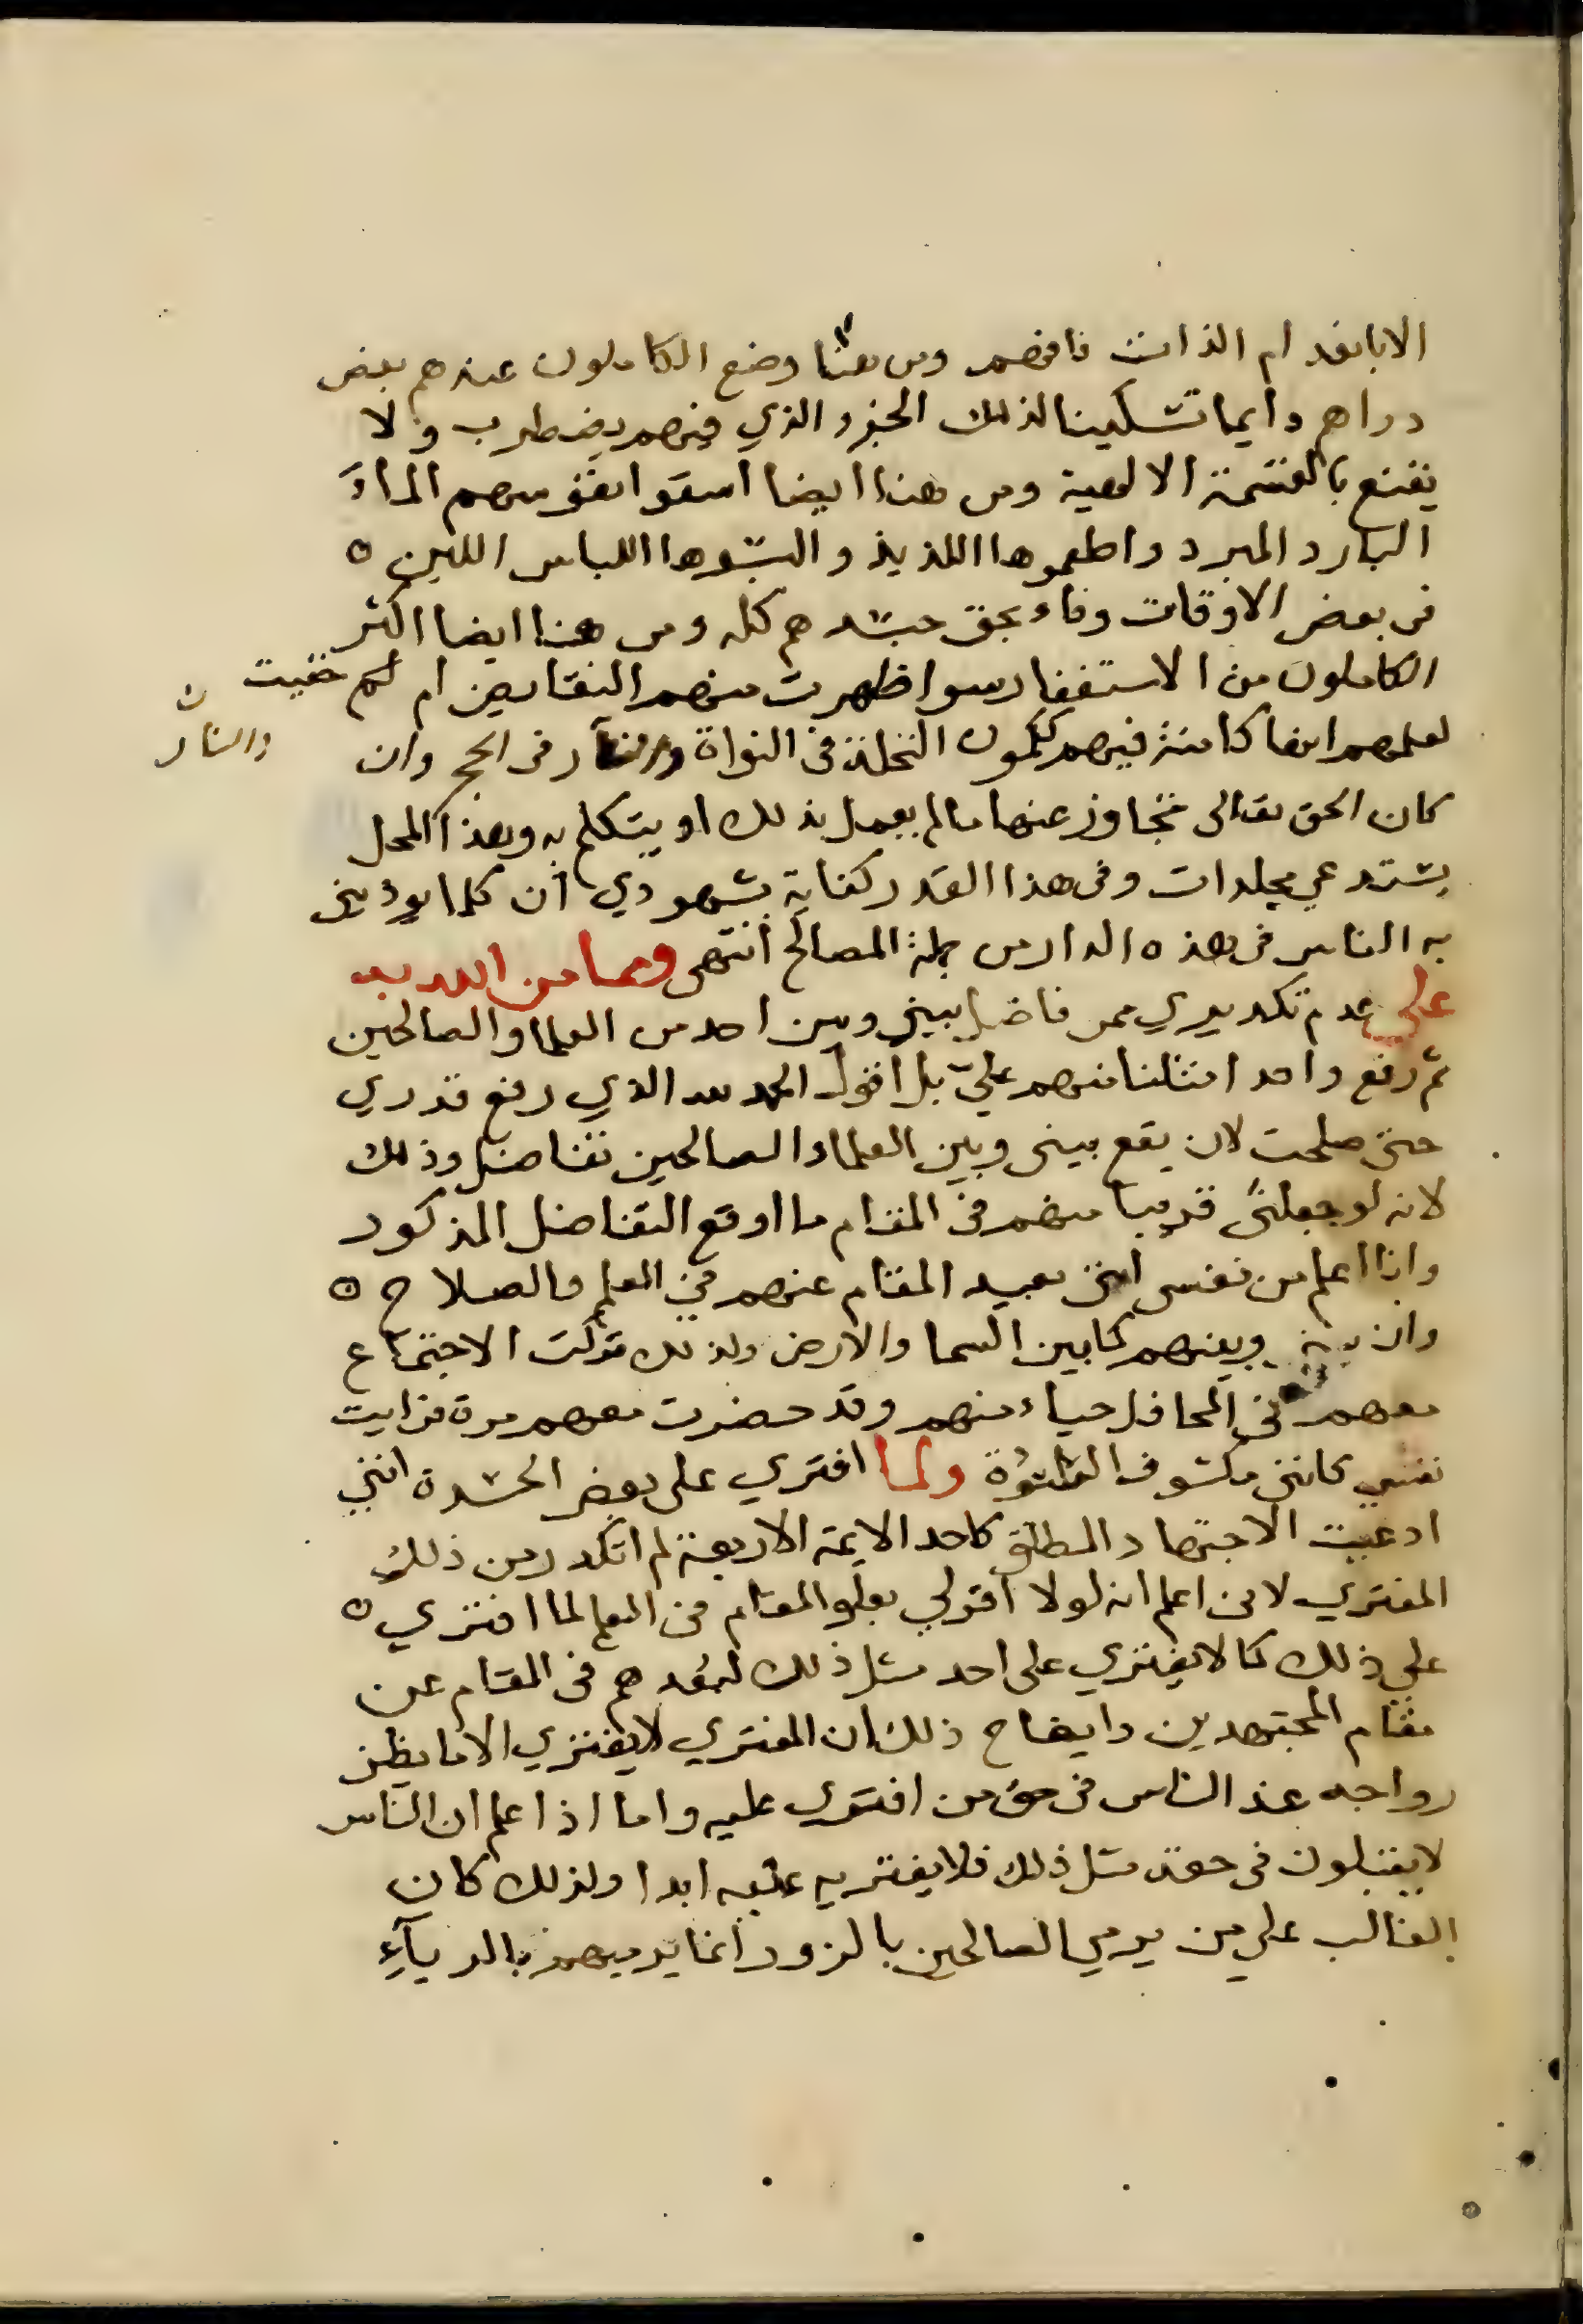 الا بانعدام الذات فافهم ومن هنا وضع الكاملون عندهم بعض
دراهم دايما تسكينا لذلك الجزء الذي فيهم يضطرب ولا
يقنع بالقسمة الالهية ومن هنا ايضا اسقوا نفوسهم الماءَ
البارد المبرد واطعموها اللذيذ والبسوها اللباس اللين ه
فى بعض الاوقات وفاء بحق جسدهم كله ومن هنا ايضا اكثر
الكاملون من الاستغفار سوا ظهرت منهم النقايص ام لم خفيت
لعلمهم انها كامنة فيهم ككمون النخلة فى النواة والنار فى الحجر وان
والنار ن
كان الحق تعالى تجاوز عنها ما لم يعمل بذلك او يتكلم به وهذا المحل
يستدعي مجلدات وفى هذا القدر كفاية بشهودي ان كلما يوذيني
به الناس فى هذه الدار من جملة المصالح انتهى ومما من الله به
علي عدم تكديري ممن فاضل بيني وبين احد من العلما والصالحين
ثم رفع واحدا مثلنا منهم عليّ بل اقول الحمد لله الذي رفع قدري
حتى صلحت لان يقع بينى وبين العلماء والصالحين تفاضل وذلك
لانه لو جعلنى قريبا منهم فى المقام ما اوقع التفاضل المذكور
وانا اعلم من نفسى اننى بعيد المقام عنهم في العلم والصلاح ه
وان بيني وبينهم كما بين السما والارض ولذلك تركت الاجتماع
معهم في المحافل حياء منهم وقد حضرت معهم مرة فرايت
نفسي كاننى مكشوف العورة ولما افترى على بعض الحسدة انني
ادعيت الاجتهاد المطلق كاحد الايمة الاربعة لم اتكدر من ذلك
المفتري لانى اعلم انه لولا اقر لي بعلو المقام فى العلم لما افترى ه
علي ذلك كما لا يفتري على احد مثل ذلك لبُعدهم فى المقام عن
مقام المجتهدين وايضاح ذلك ان المفتري لا يفتري الا ما يظن
رواجه عند الناس فى حق من افترى عليه واما اذا علم ان الناس
لا يقبلون فى حقه مثل ذلك فلا يفتريه عليه ابدا ولذلك كان
الغالب علي من يرمي الصالحين بالزور انما يرميهم بالريآءِ